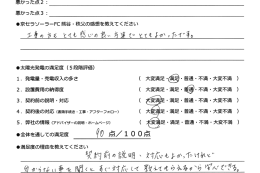 悪かった点2：
悪かった点3：
●京セラソーラーFC熊谷・秩父の感想を教えてください
工事の方もとても感じの良い方達でとてもよかったです。
●太陽光発電の満足度（5段階評価）
1．発電量・売電収入の多さ （ 大変満足・満足・普通・不満・大変不満 ）
2．設置費用の納得度 （ 大変満足・満足・普通・不満・大変不満 ）
3．契約前の説明・対応 （ 大変満足・満足・普通・不満・大変不満 ）
4．契約後の対応（ 大変満足・満足・普通・不満・大変不満 ）
5．弊社の情報（ 大変満足・満足・普通・不満・大変不満 ）
●全体を通しての満足度 90 点／100点
●満足度の理由を教えてください
契約前の説明・対応もよかったけれど